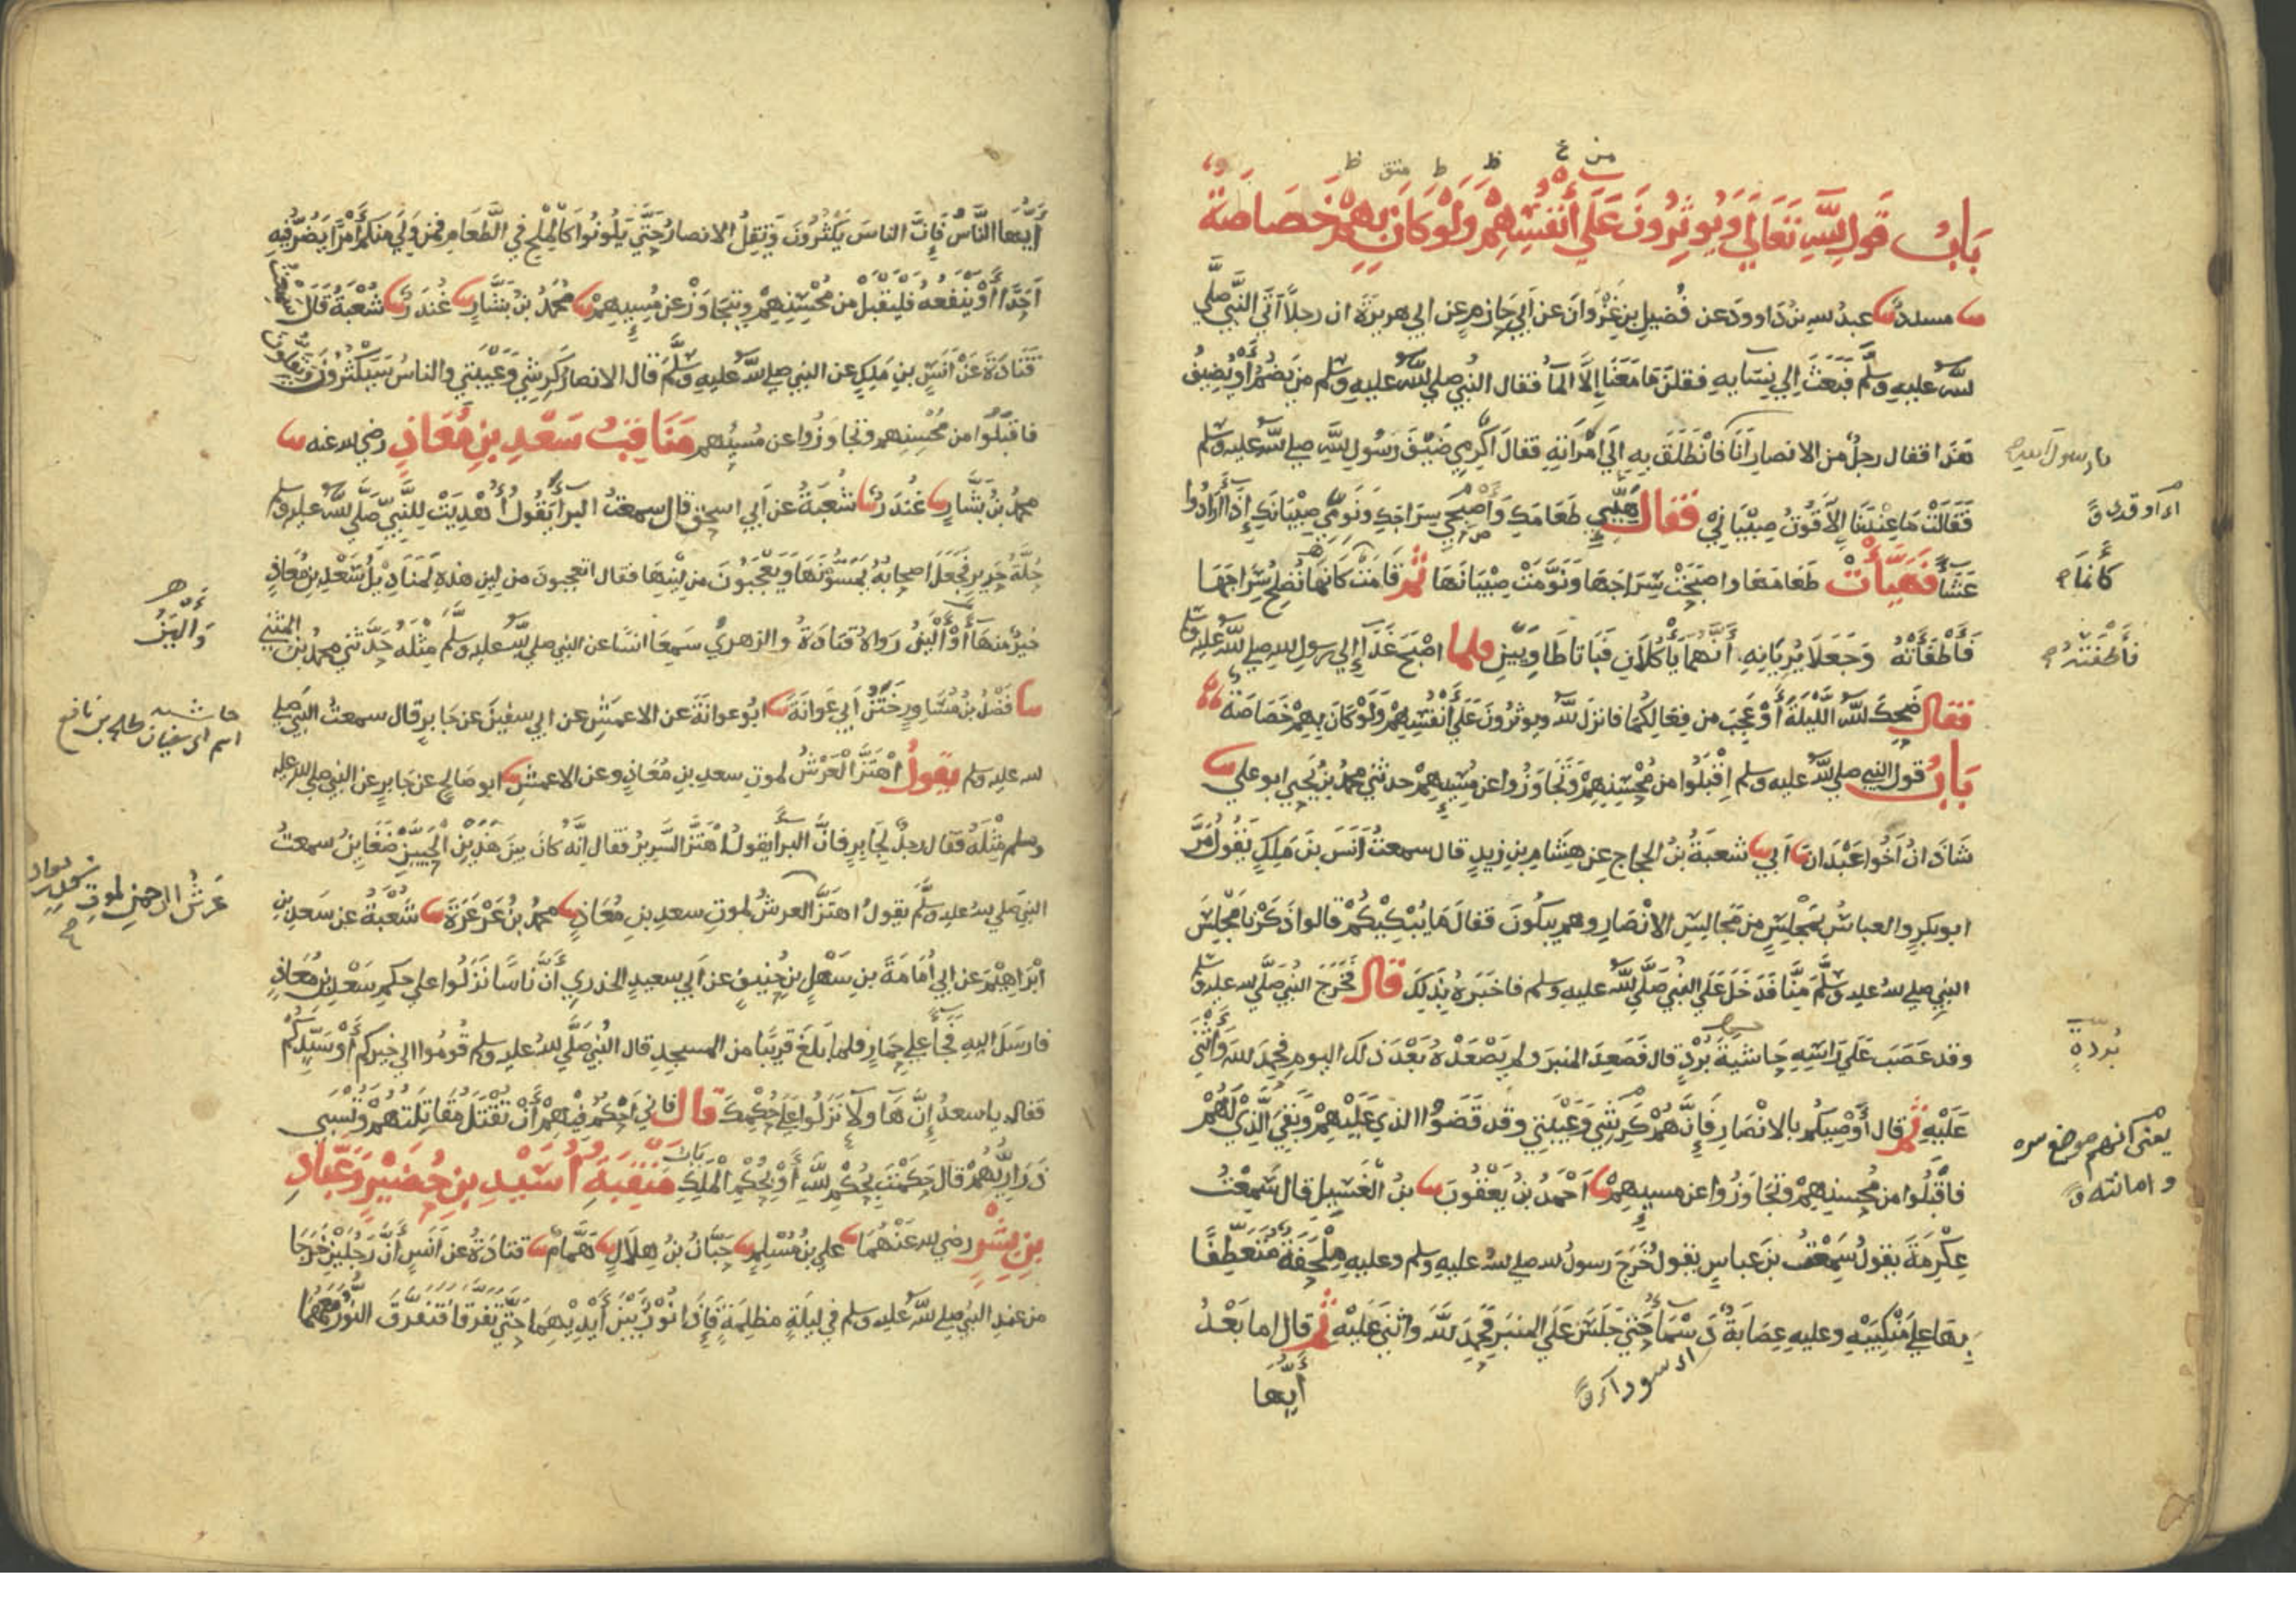 باب قول الله تعالى ويوثرون على أنفسهم ولو كان بهم خصاصة
مسدد عبد الله بن داوود عن فضيل بن غزوان عن أبي حازم عن ابي هريرة ان رجلا أتى النبي صلى
الله عليه وسلم فبعث إلى نسايه فقلن ما معنا إلا الما فقال النبي صلى الله عليه وسلم من يضم أو يضيف
هذا فقال رجل من الانصار أنا فانطلق به إلى امرأته فقال أكرمي ضيف رسول الله صلى الله عليه وسلم
فقالت ما عندنا إلا قوت صبياني فقال هيئي طعامك وأصبحي سراجك ونومي صبيانك إذا أرادوا
عشاً فهيأت طعامها واصبحت سراجها ونومت صبيانها ثم قامت كانها تصلح سراجها
فأطفأته وجعلا يريانه أنهما يأكلان فباتا طاويين فلما اصبح غدا إلى رسول الله صلى الله عليه وسلم
فقال ضحك الله الليلة أو عجب من فعالكما فانزل الله ويوثرون على أنفسهم ولو كان بهم خصاصة
باب قول النبي صلى الله عليه وسلم اقبلوا من محسنهم وتجاوزوا عن مسيهم حدثني محمد بن يحيى ابو علي
شاذان أخوا عبدان أبي شعبة بن الحجاج عن هشام بن زيد قال سمعت أنس بن ملك يقول مر
ابو بكر والعباس بمجلس من مجالس الانصار وهم يبكون فقال ما يبكيكم قالوا ذكرنا مجلس
النبي صلى الله عليه وسلم منا فدخل على النبي صلى الله عليه وسلم فاخبره بذلك قال فخرج النبي صلى الله عليه وسلم
وقد عصب على رأسه حاشية برد قال فصعد المنبر ولم يصعده بعد ذلك اليوم فحمد الله وأثنى
عليه ثم قال أوصيكم بالانصار فإنهم كرشي وعيبتي وقد قضوا الذي عليهم وبقي الذي لهم
فاقبلوا من محسنهم وتجاوزوا عن مسيهم أحمد بن يعقوب بن الغسيل قال سمعت
عكرمة يقول سمعت بن عباس يقول خرج رسول الله صلى الله عليه وسلم وعليه ملحفة متعطفا
بها على منكبيه وعليه عصابة دسما حتى جلس على المنبر فحمد الله واثنى عليه ثم قال اما بعد
أيها
يا رسول الله
اي اوقدي
كأنما
فأطفئته
بردة
يعني انهم موضع سره
وامانته
اي سوداء
أيها الناس فإن الناس يكثرون وتقل الانصار حتى يكونوا كالملح في الطعام فمن ولي منكم أمرا يضر فيه
أحدا أو ينفعه فليقبل من محسنهم ويتجاوز عن مسيهم محمد بن بشار غندر شعبة قال سمعت
قتادة عن أنس بن ملك عن النبي صلى الله عليه وسلم قال الانصار كرشي وعيبتي والناس سيكثرون ويقلون
فاقبلوا من محسنهم وتجاوزوا عن مسيئهم مناقب سعد بن معاذ رضي الله عنه
محمد بن بشار غندر شعبة عن أبي اسحق قال سمعت البرا يقول أهديت للنبي صلى الله عليه وسلم
حلة حرير فجعل اصحابه يمسونها ويعجبون من لينها فقال اتعجبون من لين هذه لمناديل سعد بن معاذ
خير منها أو ألين رواه قتادة والزهري سمعا انسا عن النبي صلى الله عليه وسلم مثله حدثني محمد بن المثنى
فضل بن مساور ختن أبي عوانة ابو عوانة عن الاعمش عن ابي سفين عن جابر قال سمعت النبي صلى
الله عليه وسلم يقول اهتز العرش لموت سعد بن معاذ وعن الاعمش ابو صالح عن جابر عن النبي صلى الله عليه
وسلم مثله فقال رجل لجابر فان البرا يقول اهتز السرير فقال انه كان بين هذين الحيين ضغاين سمعت
النبي صلى الله عليه وسلم يقول اهتز العرش لموت سعد بن معاذ محمد بن عرعرة شعبة عن سعد بن
ابراهيم عن ابي أمامة بن سهل بن حنيف عن أبي سعيد الخدري أن ناسا نزلوا على حكم سعد بن معاذ
فارسل اليه فجا على حمار فلما بلغ قريبا من المسجد قال النبي صلى الله عليه وسلم قوموا الى خيركم أو سيدكم
فقال يا سعد إن هاولا نزلوا على حكمك قال فاني أحكم فيهم أن تقتل مقاتلتهم وتسبى
ذراريهم قال حكمت بحكم الله أو بحكم الملك باب منقبة أسيد بن حضير وعباد
بن بشر رضي الله عنهما علي بن مسلم حبان بن هلال همام قتادة عن أنس أن رجلين خرجا
من عند النبي صلى الله عليه وسلم في ليلة مظلمة فإذا نور بين أيديهما حتى تفرقا فتفرق النور معهما
وألين
حاشية
اسم ابي سفيان طلحة بن نافع
عرش الرحمن لموت